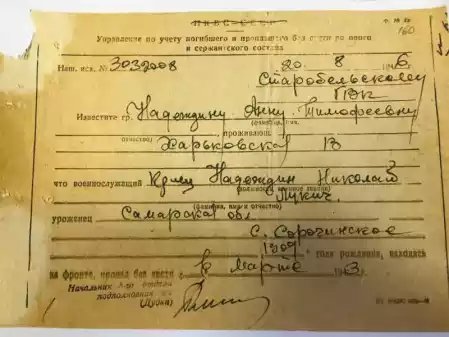 НКВС-СССР
Управление по учету погибшего и пропавшего без вести рядового
и сержантского состава
160
Наш. исх. № 3032008 20. 8 6
Старобельскому
РВК
Известите гр. Надеждину Анну Тимофеевну
отчество) , проживающ.
Харьковская 13
что военнослужащий Надеждин Николай
Лукич
(фамилия, имя и отчество)
уроженец Самарская обл.
с. Сорочинское
1909 года рождения, находясь
на фронте, пропал без вести в марте 43 г.
Начальник отдела
подполковник